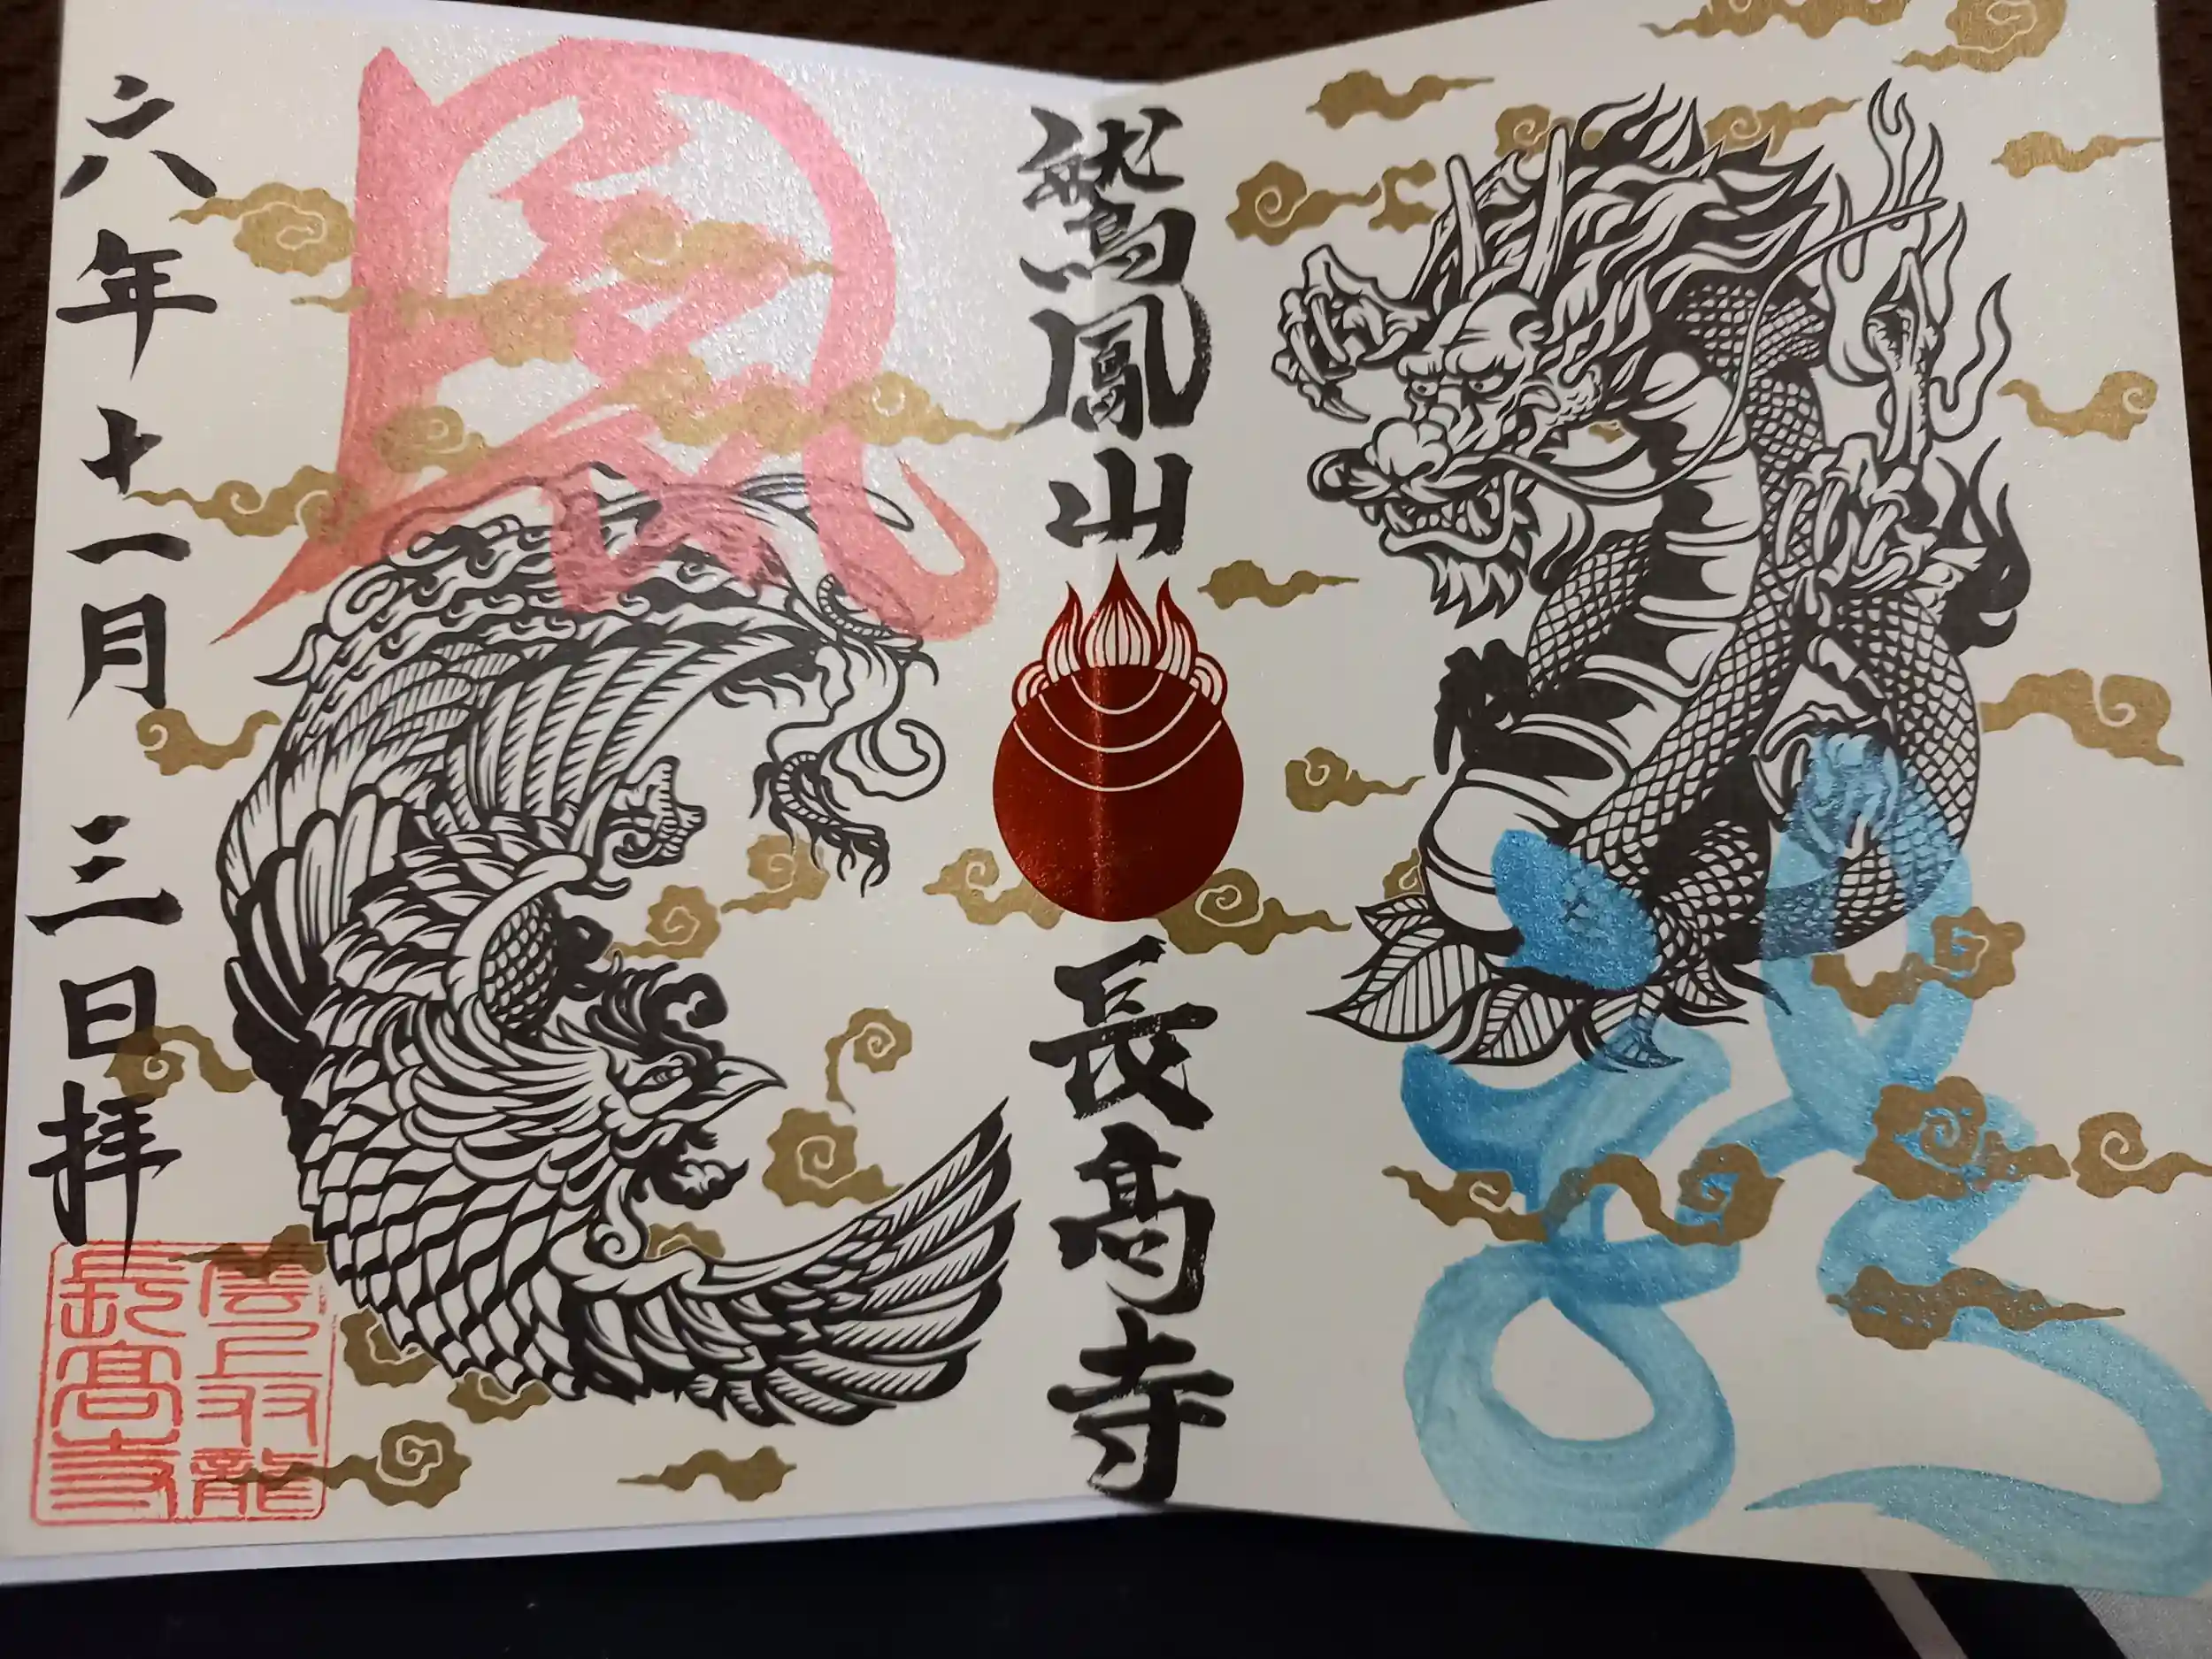 龍
鷲鳳山 長高寺
鳳
六年十一月三日拝
長高寺